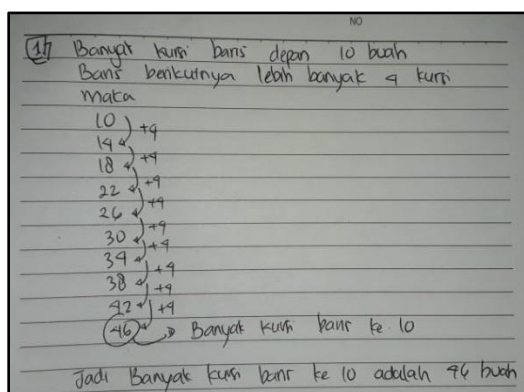 NO
1) Banyak kursi baris depan 10 buah
Baris berikutnya lebih banyak 4 kursi
maka
10
14 +4
18 +4
22 +4
26 +4
30 +4
34 +4
38 +4
42 +4
46 +4 → Banyak kursi baris ke 10
Jadi Banyak kursi baris ke 10 adalah 46 buah